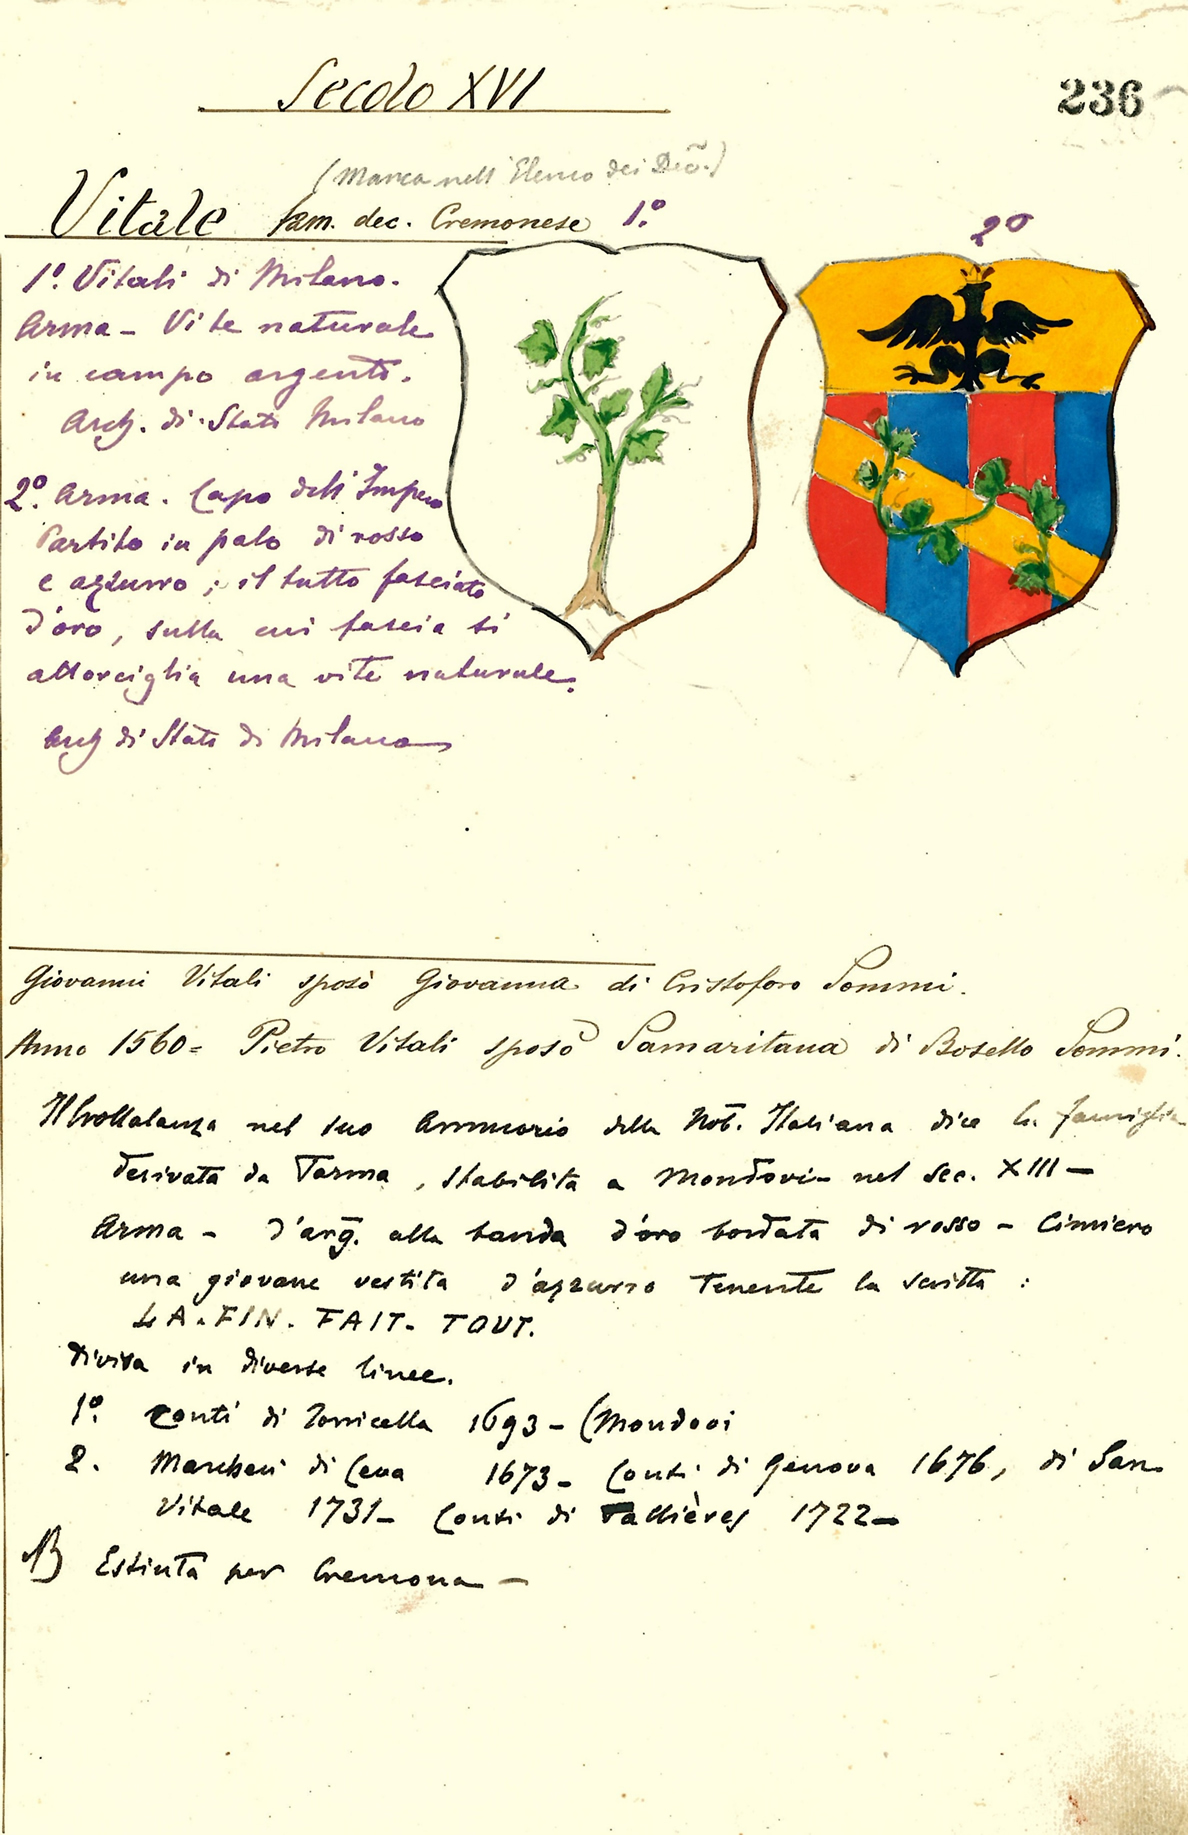 Secolo XVI
236
(Manca nell'Elenco dei Dec.)
Vitale fam. dec. Cremonese 1º
2º
1º. Vitali di Milano.
Arma - Vite naturale
in campo argento.
Arch. di Stato Milano
2º. Arma. Capo dell'Impero
Partito in palo di rosso
e azzurro; il tutto fasciato
d'oro, sulla cui fascia si
attorciglia una vite naturale.
Arch di Stato di Milano
Giovanni Vitali sposò Giovanna di Cristoforo Sommi.
Anno 1560 = Pietro Vitali sposò Samaritana di Bosello Sommi.
Il Crollalanza nel suo Annuario della Nob. Italiana dice la famiglia
derivata da Parma, stabilita a Mondovi - nel sec. XIII -
Arma - D'arg. alla banda d'oro bordata di rosso - Cimiero
una giovane vestita d'azzurro tenente la scritta:
LA. FIN. FAIT. TOUT.
Divisa in diverse linee.
1º. Conti di Torricella 1693 - (Mondovi
2. Marchesi di Ceva 1673 - Conti di Genova 1676, di San
Vitale 1731 - Conti di Pallières 1722 -
NB Estinta per Cremona -